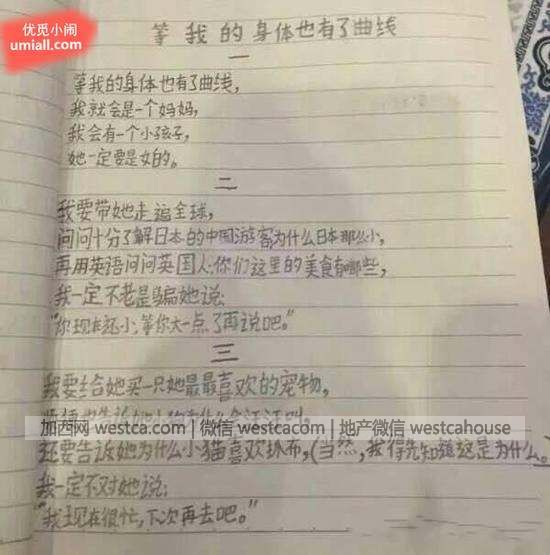 优觅小闹
umiall.com
等我的身体也有了曲线
一
等我的身体也有了曲线，
我就会是一个妈妈，
我会有一个小孩子，
她一定要是女的。
二
我要带她走遍全球，
问问十分了解日本的中国游客为什么日本那么小，
再用英语问问英国人：你们这里的美食有哪些，
我一定不老是骗她说：
“你现在还小，等你大一点了再说吧。”
三
我要给她买一只她最最喜欢的宠物，
加西网 westca.com | 加西微信 westcacom | 地产微信 westcahouse
还要告诉她为什么小猫喜欢抓布，(当然，我得先知道这是为什么。)
我一定不对她说：
“我现在很忙，下次再去吧。”